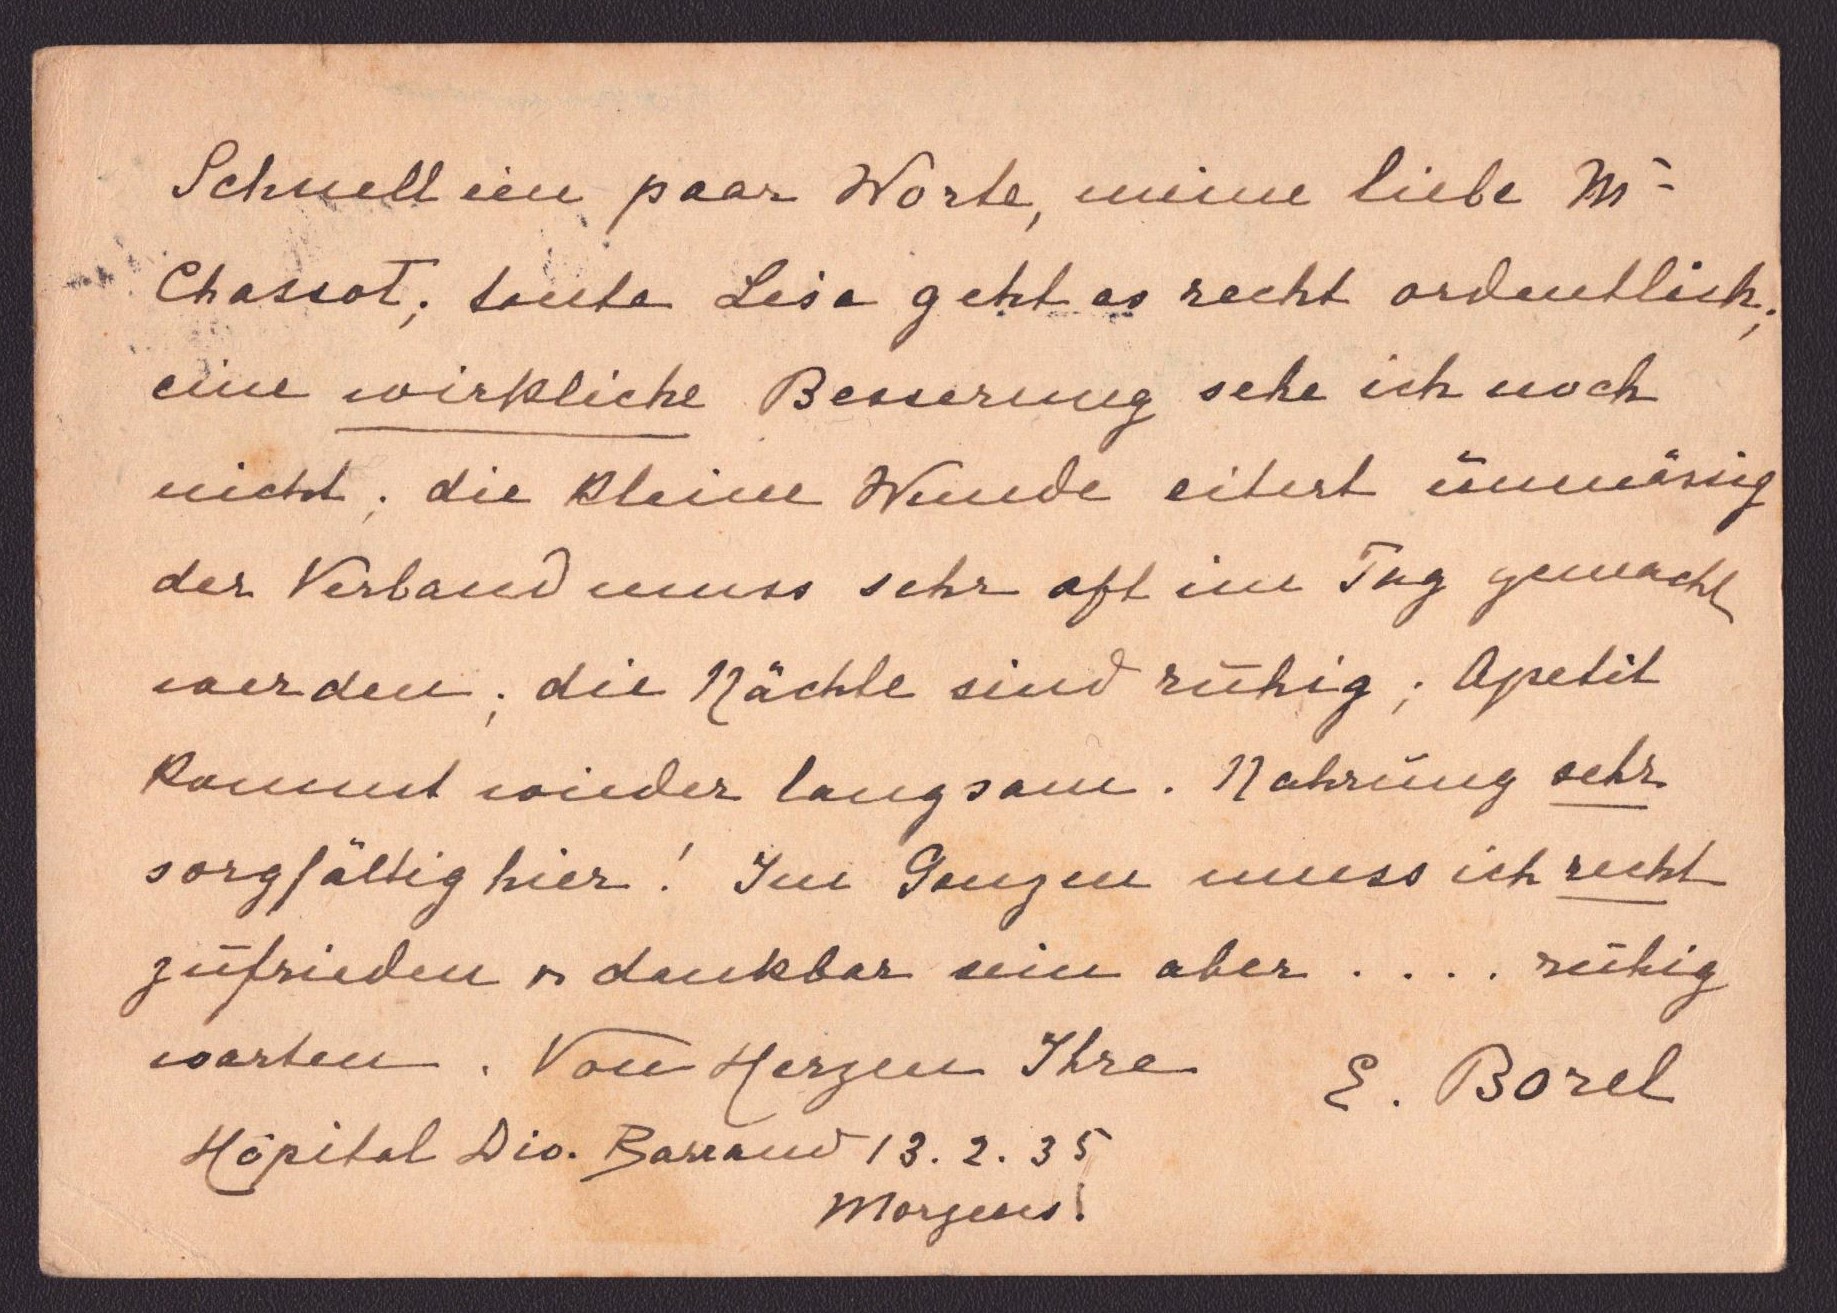 Schnell ein paar Worte, meine liebe M-
Chassot; tante Lise geht es recht ordentlich;
eine wirkliche Besserung sehe ich noch
nicht; die kleine Wunde eitert unmässig
der Verband muss sehr oft im Tag gemacht
werden; die Nächte sind ruhig; Apetit
kommt wieder langsam. Nahrung sehr
sorgfältig hier! Im Ganzen muss ich recht
zufrieden & dankbar sein aber . . . . ruhig
warten. Von Herzen Ihre E. Borel
Hôpital Div. Barraud 13.2.35
Morgens!